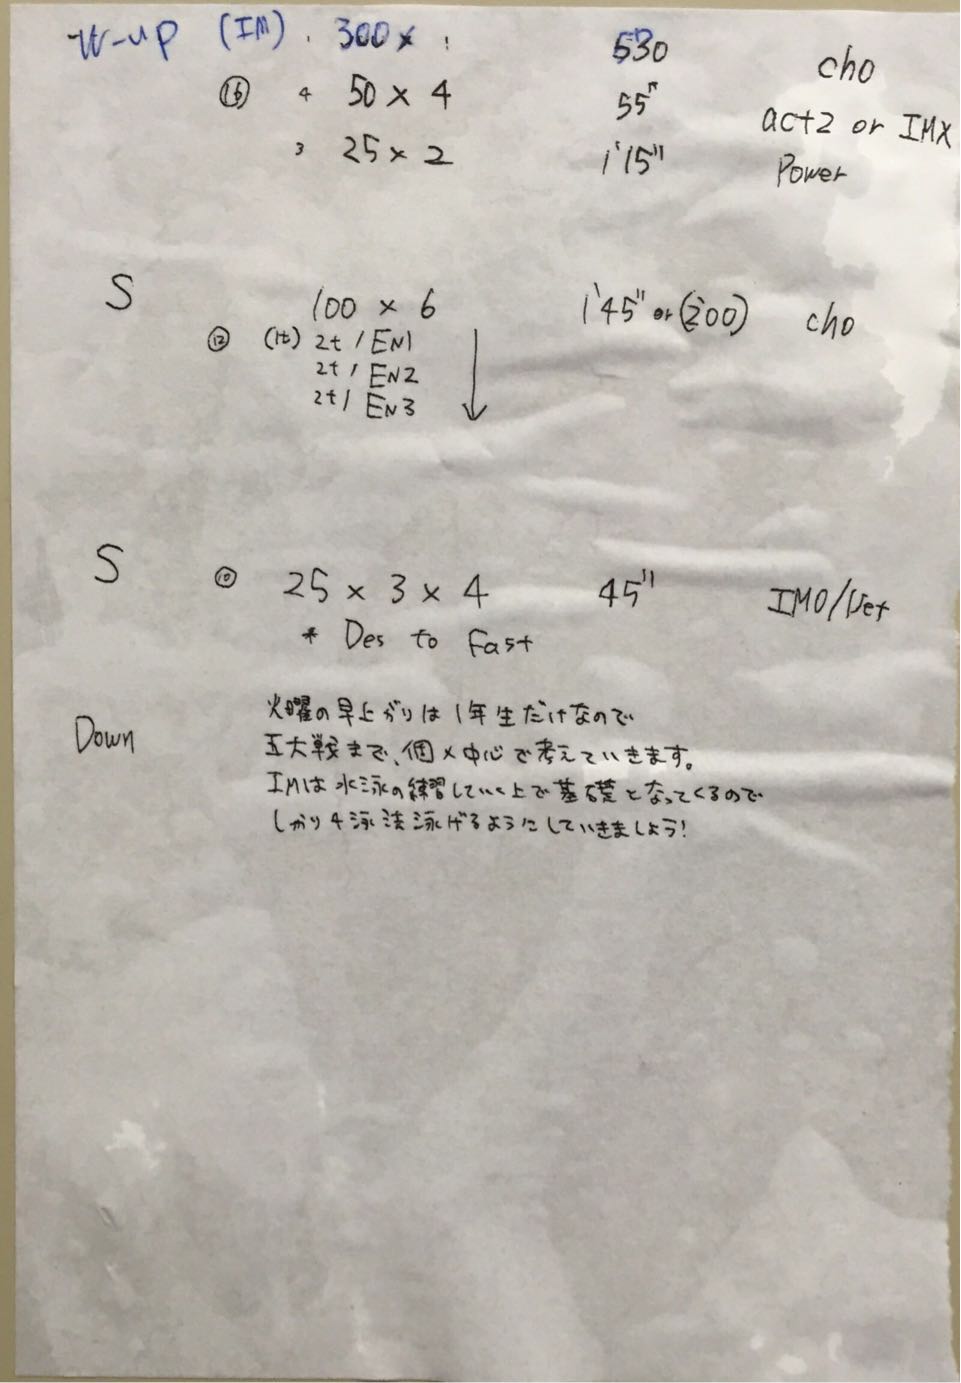 W-up (IM) 300 × 1 530 cho
⑯ 4 50 × 4 55" act2 or IMX
3 25 × 2 1'15" Power
S 100 × 6 1'45" or (2'00) cho
⑫ (1t) 2t / EN1
2t / EN2
2t / EN3
S ⑩ 25 × 3 × 4 45" IMO/
* Des to Fast
Down 火曜の早上がりは1年生だけなので
五大戦まで、個メ中心で考えていきます。
IMは水泳の練習していく上で基礎となってくるので
しかり4泳法泳げるようにしていきましょう!